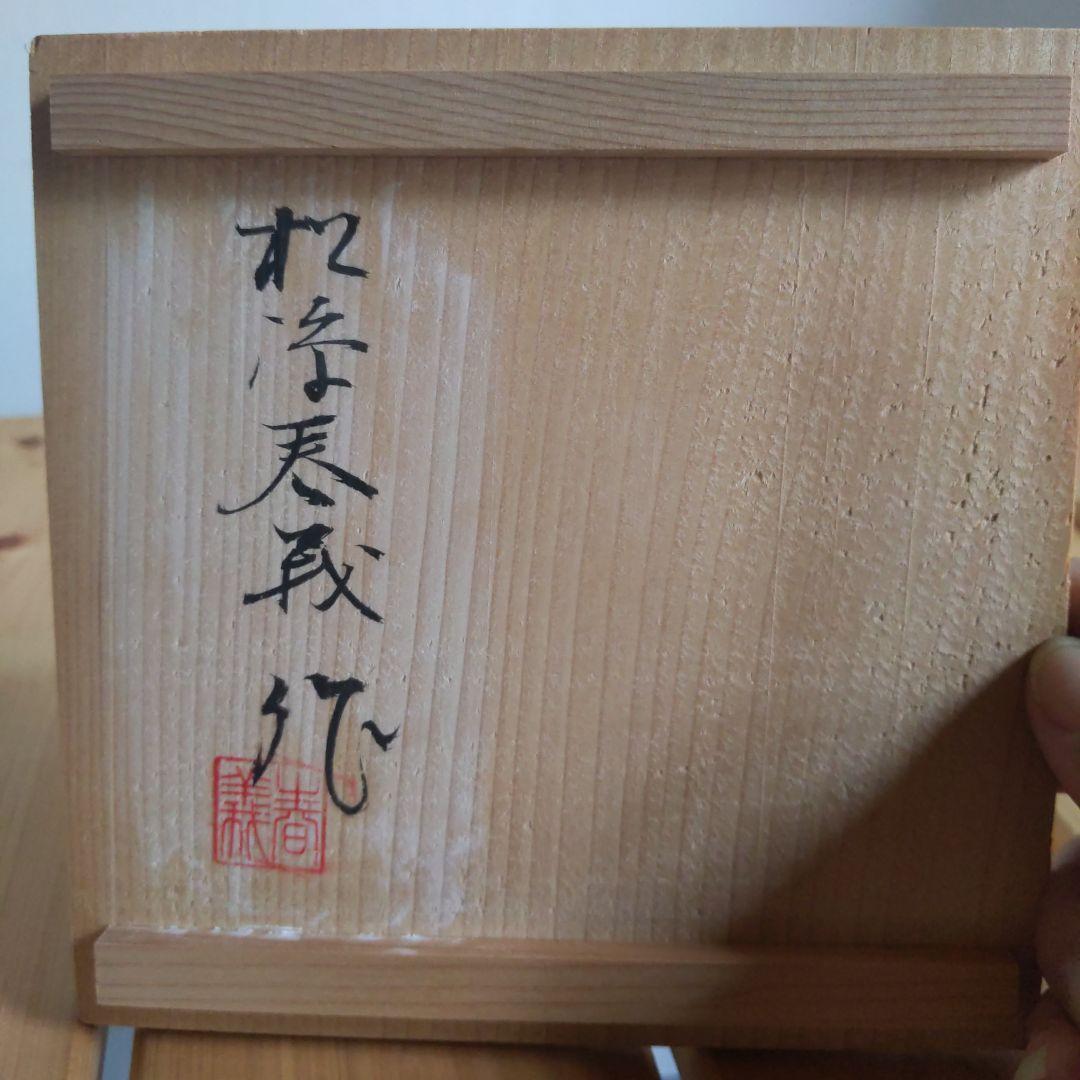 松澤春義 作
春義